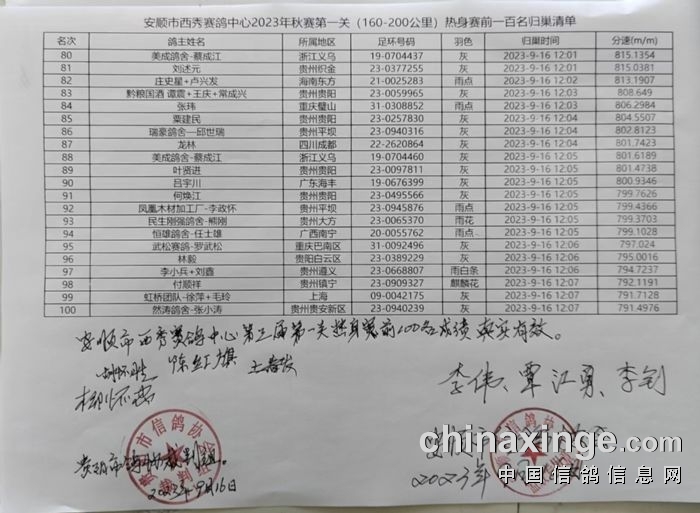 安顺市西秀赛鸽中心2023年秋赛第一关（160-200公里）热身赛前一百名归巢清单
名次 鸽主姓名 所属地区 足环号码 羽色 归巢时间 分速(m/m)
80 美成鸽舍-蔡成江 浙江义乌 19-0704437 灰 2023-9-16 12:01 815.1354
81 刘述元 贵州织金 23-0377255 灰 2023-9-16 12:01 815.0381
82 庄史星+卢兴发 海南东方 21-0025283 雨点 2023-9-16 12:02 813.1907
83 黔粮国酒 谭震+王庆+常成兴 贵州贵阳 23-0059965 灰 2023-9-16 12:03 808.649
84 张玮 重庆璧山 31-0308852 雨点 2023-9-16 12:03 806.2984
85 粟建民 贵州贵阳 23-0257830 灰 2023-9-16 12:04 804.5507
86 瑞豪鸽舍—邱世瑞 贵州平坝 23-0940316 灰 2023-9-16 12:04 802.8123
87 龙林 四川成都 22-2620864 灰 2023-9-16 12:04 801.7423
88 美成鸽舍-蔡成江 浙江义乌 19-0704460 灰 2023-9-16 12:05 801.6189
89 叶贤进 贵州贵阳 23-0097811 灰 2023-9-16 12:05 801.4738
90 吕宇川 广东海丰 19-0676399 灰 2023-9-16 12:05 800.9346
91 何焕江 贵州贵阳 23-0495566 灰 2023-9-16 12:05 799.7626
92 凤凰木材加工厂-李政怀 贵州平坝 23-0945876 雨点 2023-9-16 12:05 799.4366
93 民生刚强鸽舍-熊刚 贵州大方 23-0065370 雨花 2023-9-16 12:05 799.3703
94 恒雄鸽舍-任士雄 广西南宁 20-0055762 雨点 2023-9-16 12:05 799.1028
95 武松赛鸽-罗武松 重庆巴南区 31-0092496 灰 2023-9-16 12:06 797.024
96 林毅 贵阳白云区 23-0389229 灰 2023-9-16 12:06 795.0016
97 李小兵+刘鑫 贵州遵义 23-0668807 雨白条 2023-9-16 12:06 794.7237
98 付顺祥 贵州镇宁 23-0909327 麒麟花 2023-9-16 12:07 791.1211
99 虹桥团队-徐萍+毛玲 上海 09-0042175 灰 2023-9-16 12:07 791.7128
100 然涛鸽舍-张小涛 贵州贵安新区 23-0940239 灰 2023-9-16 12:07 791.4976
安顺市西秀赛鸽中心第三届第一关热身赛前100名成绩真实有效。
陈红旗
李伟、覃江勇、李钊
市信鸽协
贵阳市鸽协裁判组。
2023年9月16日
2023年
chinaxinge.com
中国信鸽信息网